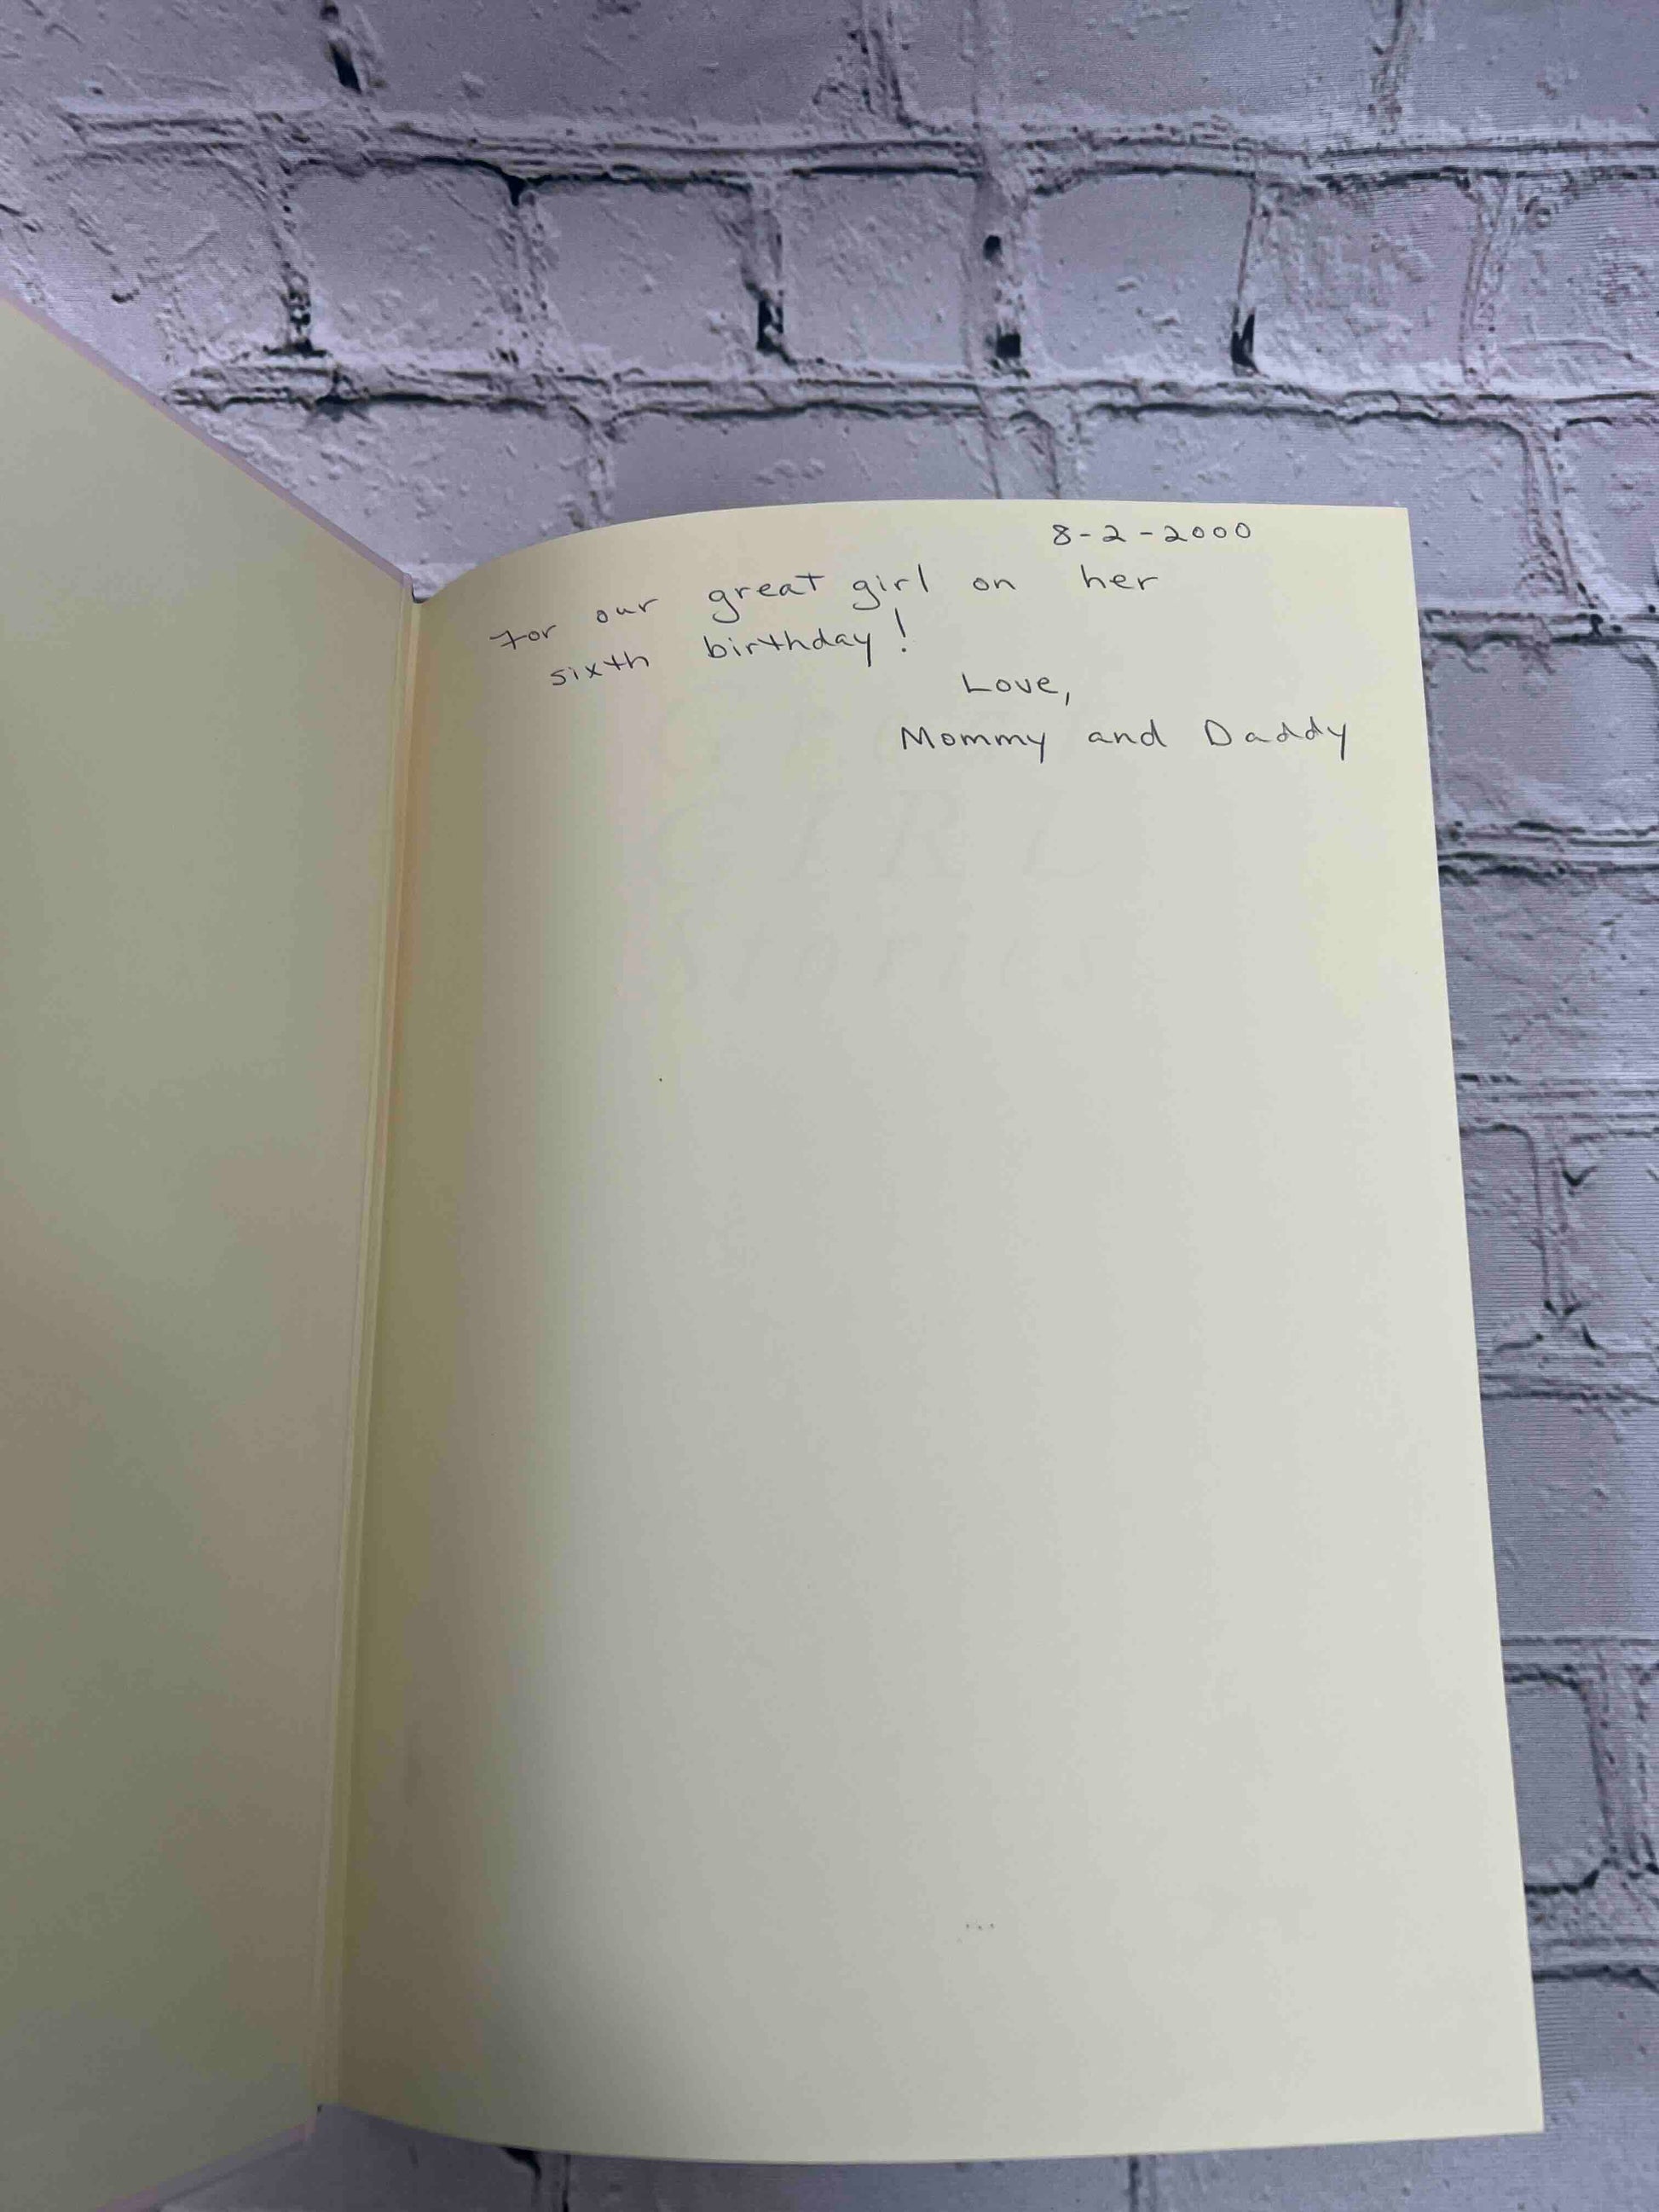 8-2-2000
For our great girl on her
sixth birthday!
Love,
Mommy and Daddy
GIRL
Stories